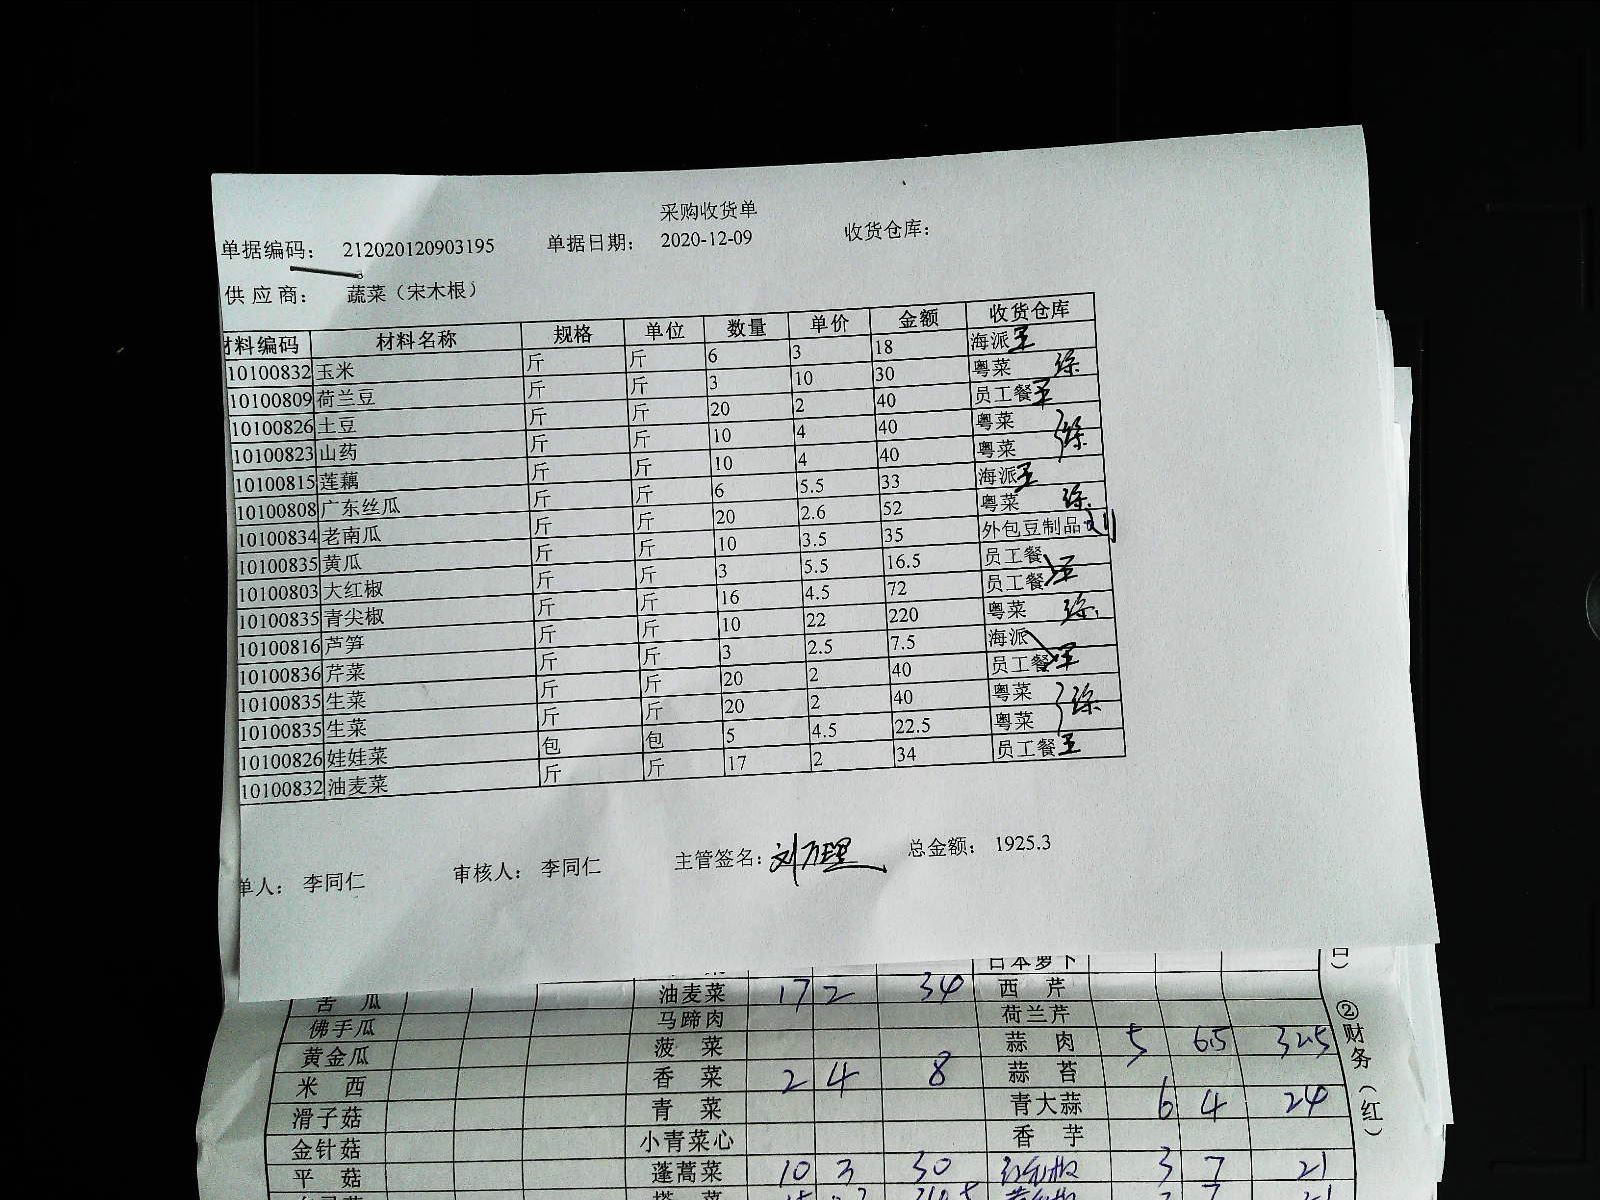 采购收货单
单据编码： 212020120903195 单据日期： 2020-12-09 收货仓库：
供 应 商： 蔬菜（宋木根）
材料编码 材料名称 规格 单位 数量 单价 金额 收货仓库
10100832 玉米 斤 斤 6 3 18 海派 王
10100809 荷兰豆 斤 斤 3 10 30 粤菜
10100826 土豆 斤 斤 20 2 40 员工餐 王
10100823 山药 斤 斤 10 4 40 粤菜
10100815 莲藕 斤 斤 10 4 40 粤菜
10100808 广东丝瓜 斤 斤 6 5.5 33 海派 王
10100834 老南瓜 斤 斤 20 2.6 52 粤菜
10100835 黄瓜 斤 斤 10 3.5 35 外包豆制品 刘
10100803 大红椒 斤 斤 3 5.5 16.5 员工餐
10100835 青尖椒 斤 斤 16 4.5 72 员工餐 王
10100816 芦笋 斤 斤 10 22 220 粤菜
10100836 芹菜 斤 斤 3 2.5 7.5 海派
10100835 生菜 斤 斤 20 2 40 员工餐 王
10100835 生菜 斤 斤 20 2 40 粤菜
10100826 娃娃菜 包 包 5 4.5 22.5 粤菜
10100832 油麦菜 斤 斤 17 2 34 员工餐 王
单人： 李同仁 审核人： 李同仁 主管签名： 刘万理 总金额： 1925.3
日本萝卜
苦 瓜 油麦菜 17 2 34 西 芹
佛手瓜 马蹄肉 荷兰芹
黄金瓜 菠 菜 蒜 肉 5 65 325
米 西 香 菜 2 4 8 蒜 苔
滑子菇 青 菜 青大蒜 6 4 24
金针菇 小青菜心 香 芋
平 菇 蓬蒿菜 10 3 30 3 7 21
②财务（红）